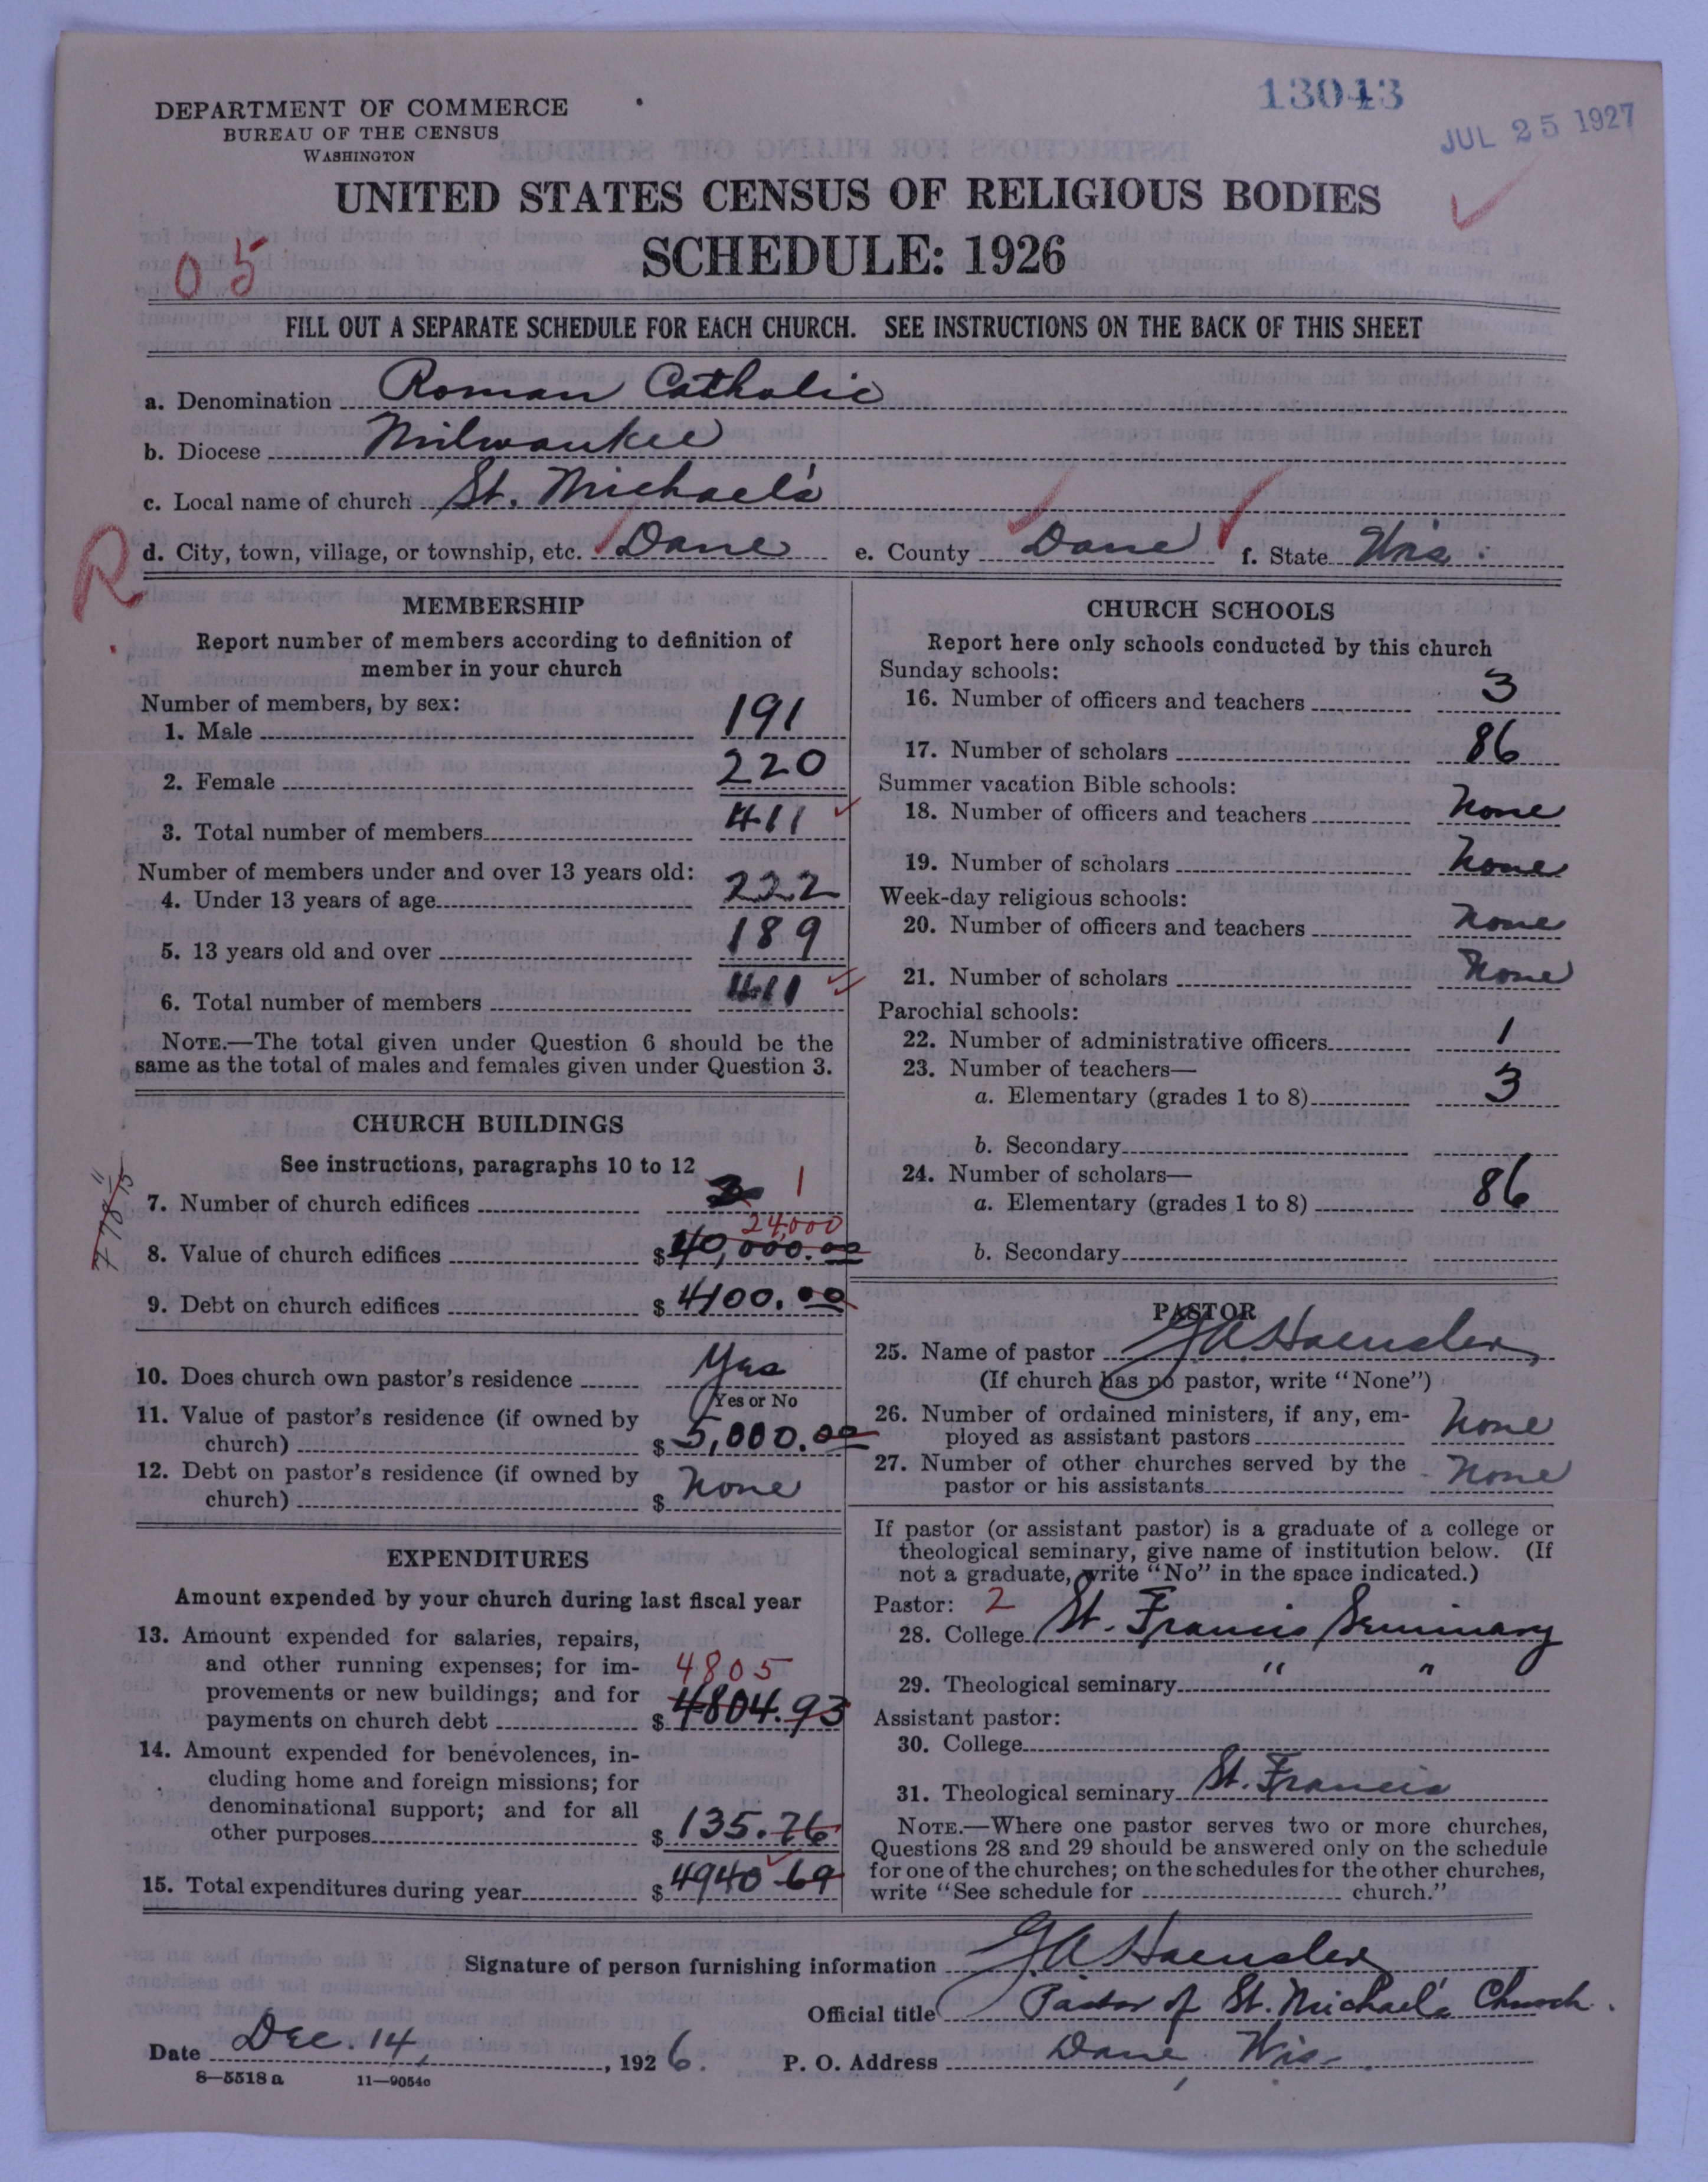 13043
JUL 25 1927
DEPARTMENT OF COMMERCE
BUREAU OF THE CENSUS
WASHINGTON
UNITED STATES CENSUS OF RELIGIOUS BODIES
SCHEDULE: 1926
05
FILL OUT A SEPARATE SCHEDULE FOR EACH CHURCH. SEE INSTRUCTIONS ON THE BACK OF THIS SHEET
a. Denomination Roman Catholic
b. Diocese Milwaukee
c. Local name of church St. Michael's
d. City, town, village, or township, etc. Dane e. County Dane f. State Wis.
R
MEMBERSHIP
Report number of members according to definition of
member in your church
Number of members, by sex:
1. Male 191
2. Female 220
3. Total number of members 411
Number of members under and over 13 years old:
4. Under 13 years of age 222
5. 13 years old and over 189
6. Total number of members 411
NOTE.—The total given under Question 6 should be the
same as the total of males and females given under Question 3.
CHURCH BUILDINGS
See instructions, paragraphs 10 to 12
7. Number of church edifices 1
24,000
8. Value of church edifices $ 40,000.00
9. Debt on church edifices $ 4100.00
10. Does church own pastor's residence Yes
Yes or No
11. Value of pastor's residence (if owned by
church) $ 5,000.00
12. Debt on pastor's residence (if owned by
church) $ None
EXPENDITURES
Amount expended by your church during last fiscal year
13. Amount expended for salaries, repairs,
and other running expenses; for im-
4805
provements or new buildings; and for
payments on church debt $ 4804.93
14. Amount expended for benevolences, in-
cluding home and foreign missions; for
denominational support; and for all
other purposes $ 135.76
15. Total expenditures during year $ 4940.69
CHURCH SCHOOLS
Report here only schools conducted by this church
Sunday schools:
16. Number of officers and teachers 3
17. Number of scholars 86
Summer vacation Bible schools:
18. Number of officers and teachers None
19. Number of scholars None
Week-day religious schools:
20. Number of officers and teachers None
21. Number of scholars None
Parochial schools:
22. Number of administrative officers 1
23. Number of teachers—
a. Elementary (grades 1 to 8) 3
b. Secondary
24. Number of scholars—
a. Elementary (grades 1 to 8) 86
b. Secondary
PASTOR
25. Name of pastor G.A. Haeusler
(If church has no pastor, write "None")
26. Number of ordained ministers, if any, em-
ployed as assistant pastors None
27. Number of other churches served by the
pastor or his assistants None
If pastor (or assistant pastor) is a graduate of a college or
theological seminary, give name of institution below. (If
not a graduate, write "No" in the space indicated.)
Pastor: 2
28. College St. Francis Seminary
29. Theological seminary " "
Assistant pastor:
30. College
31. Theological seminary St. Francis
NOTE.—Where one pastor serves two or more churches,
Questions 28 and 29 should be answered only on the schedule
for one of the churches; on the schedules for the other churches,
write "See schedule for church."
Signature of person furnishing information G.A. Haeusler
Official title Pastor of St. Michael's Church.
Date Dec. 14, 1926. P. O. Address Dane, Wis.
8—5518 a 11—9054o